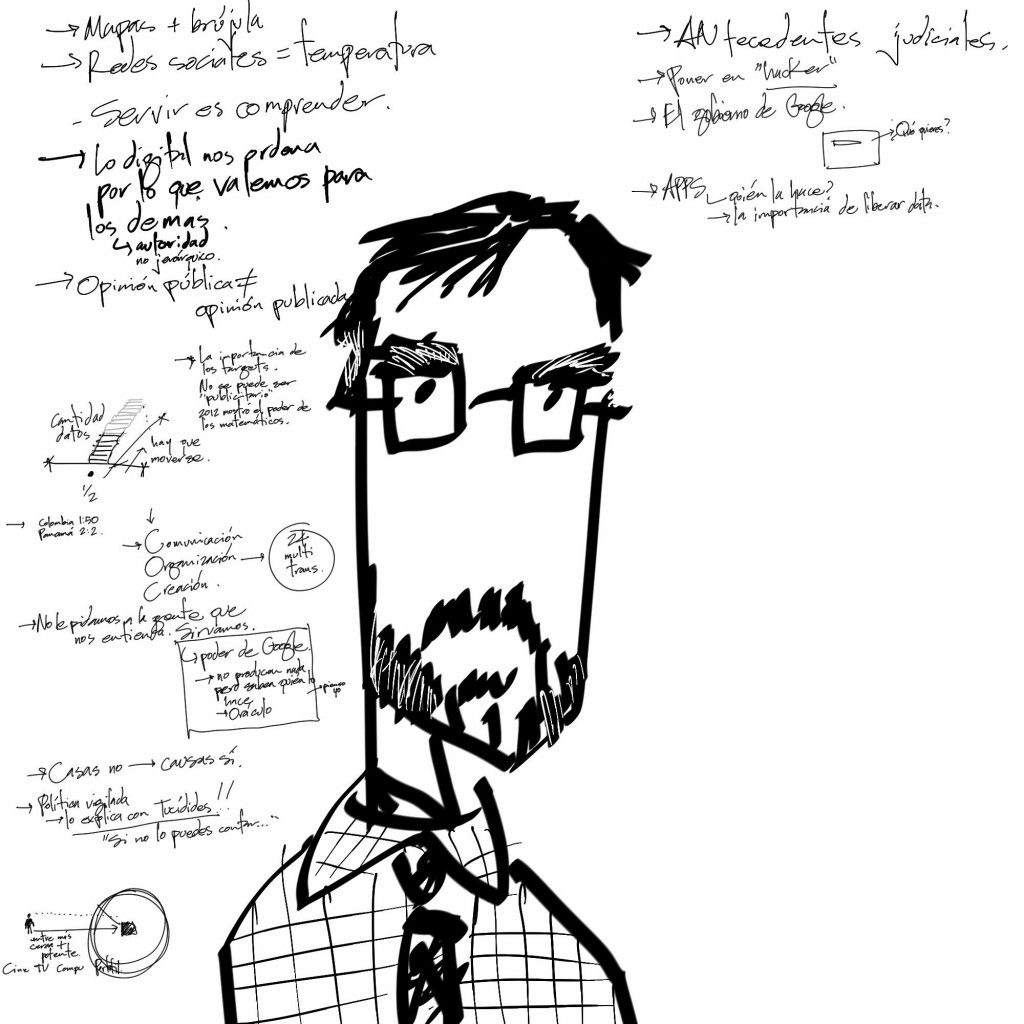 → Mapas + brújula
→ Redes sociales = temperatura
- Servir es comprender.
→ Lo digital nos ordena
por lo que valemos para
los demás.
↳ autoridad
no jerárquico.
→ Opinión pública ≠
opinión publicada
→ La importancia de
los targets.
No se puede ser
"publicitario"
2012 mostró el poder de
los matemáticos.
Cantidad
datos
hay que
moverse.
1/2
→ Colombia 1:50
Panamá 2:2.
→ Comunicación
Organización →
Creación.
24
multi
trans.
→ No le pidamos a la gente que
nos entienda. Sirvamos.
↳ poder de Google.
→ no producen nada
pero saben quién lo
hace
→ Oráculo
→ pienso
yo
→ Casas no → causas sí.
→ Política vigilada
→ lo explica con Tucídides !!
"Si no lo puedes contar..."
entre más
cerca +
potente.
Cine TV Compu
→ ANtecedentes judiciales.
→ Poner en "hacker"
→ El gobierno de Google.
→ ¿Qué quieres?
→ APPS
quién la hace?
→ la importancia de liberar data.